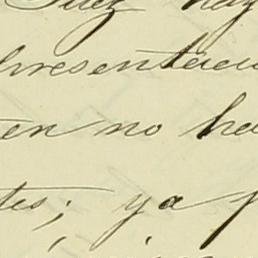 Juez hay
presentaci
en no ha
tes; ya